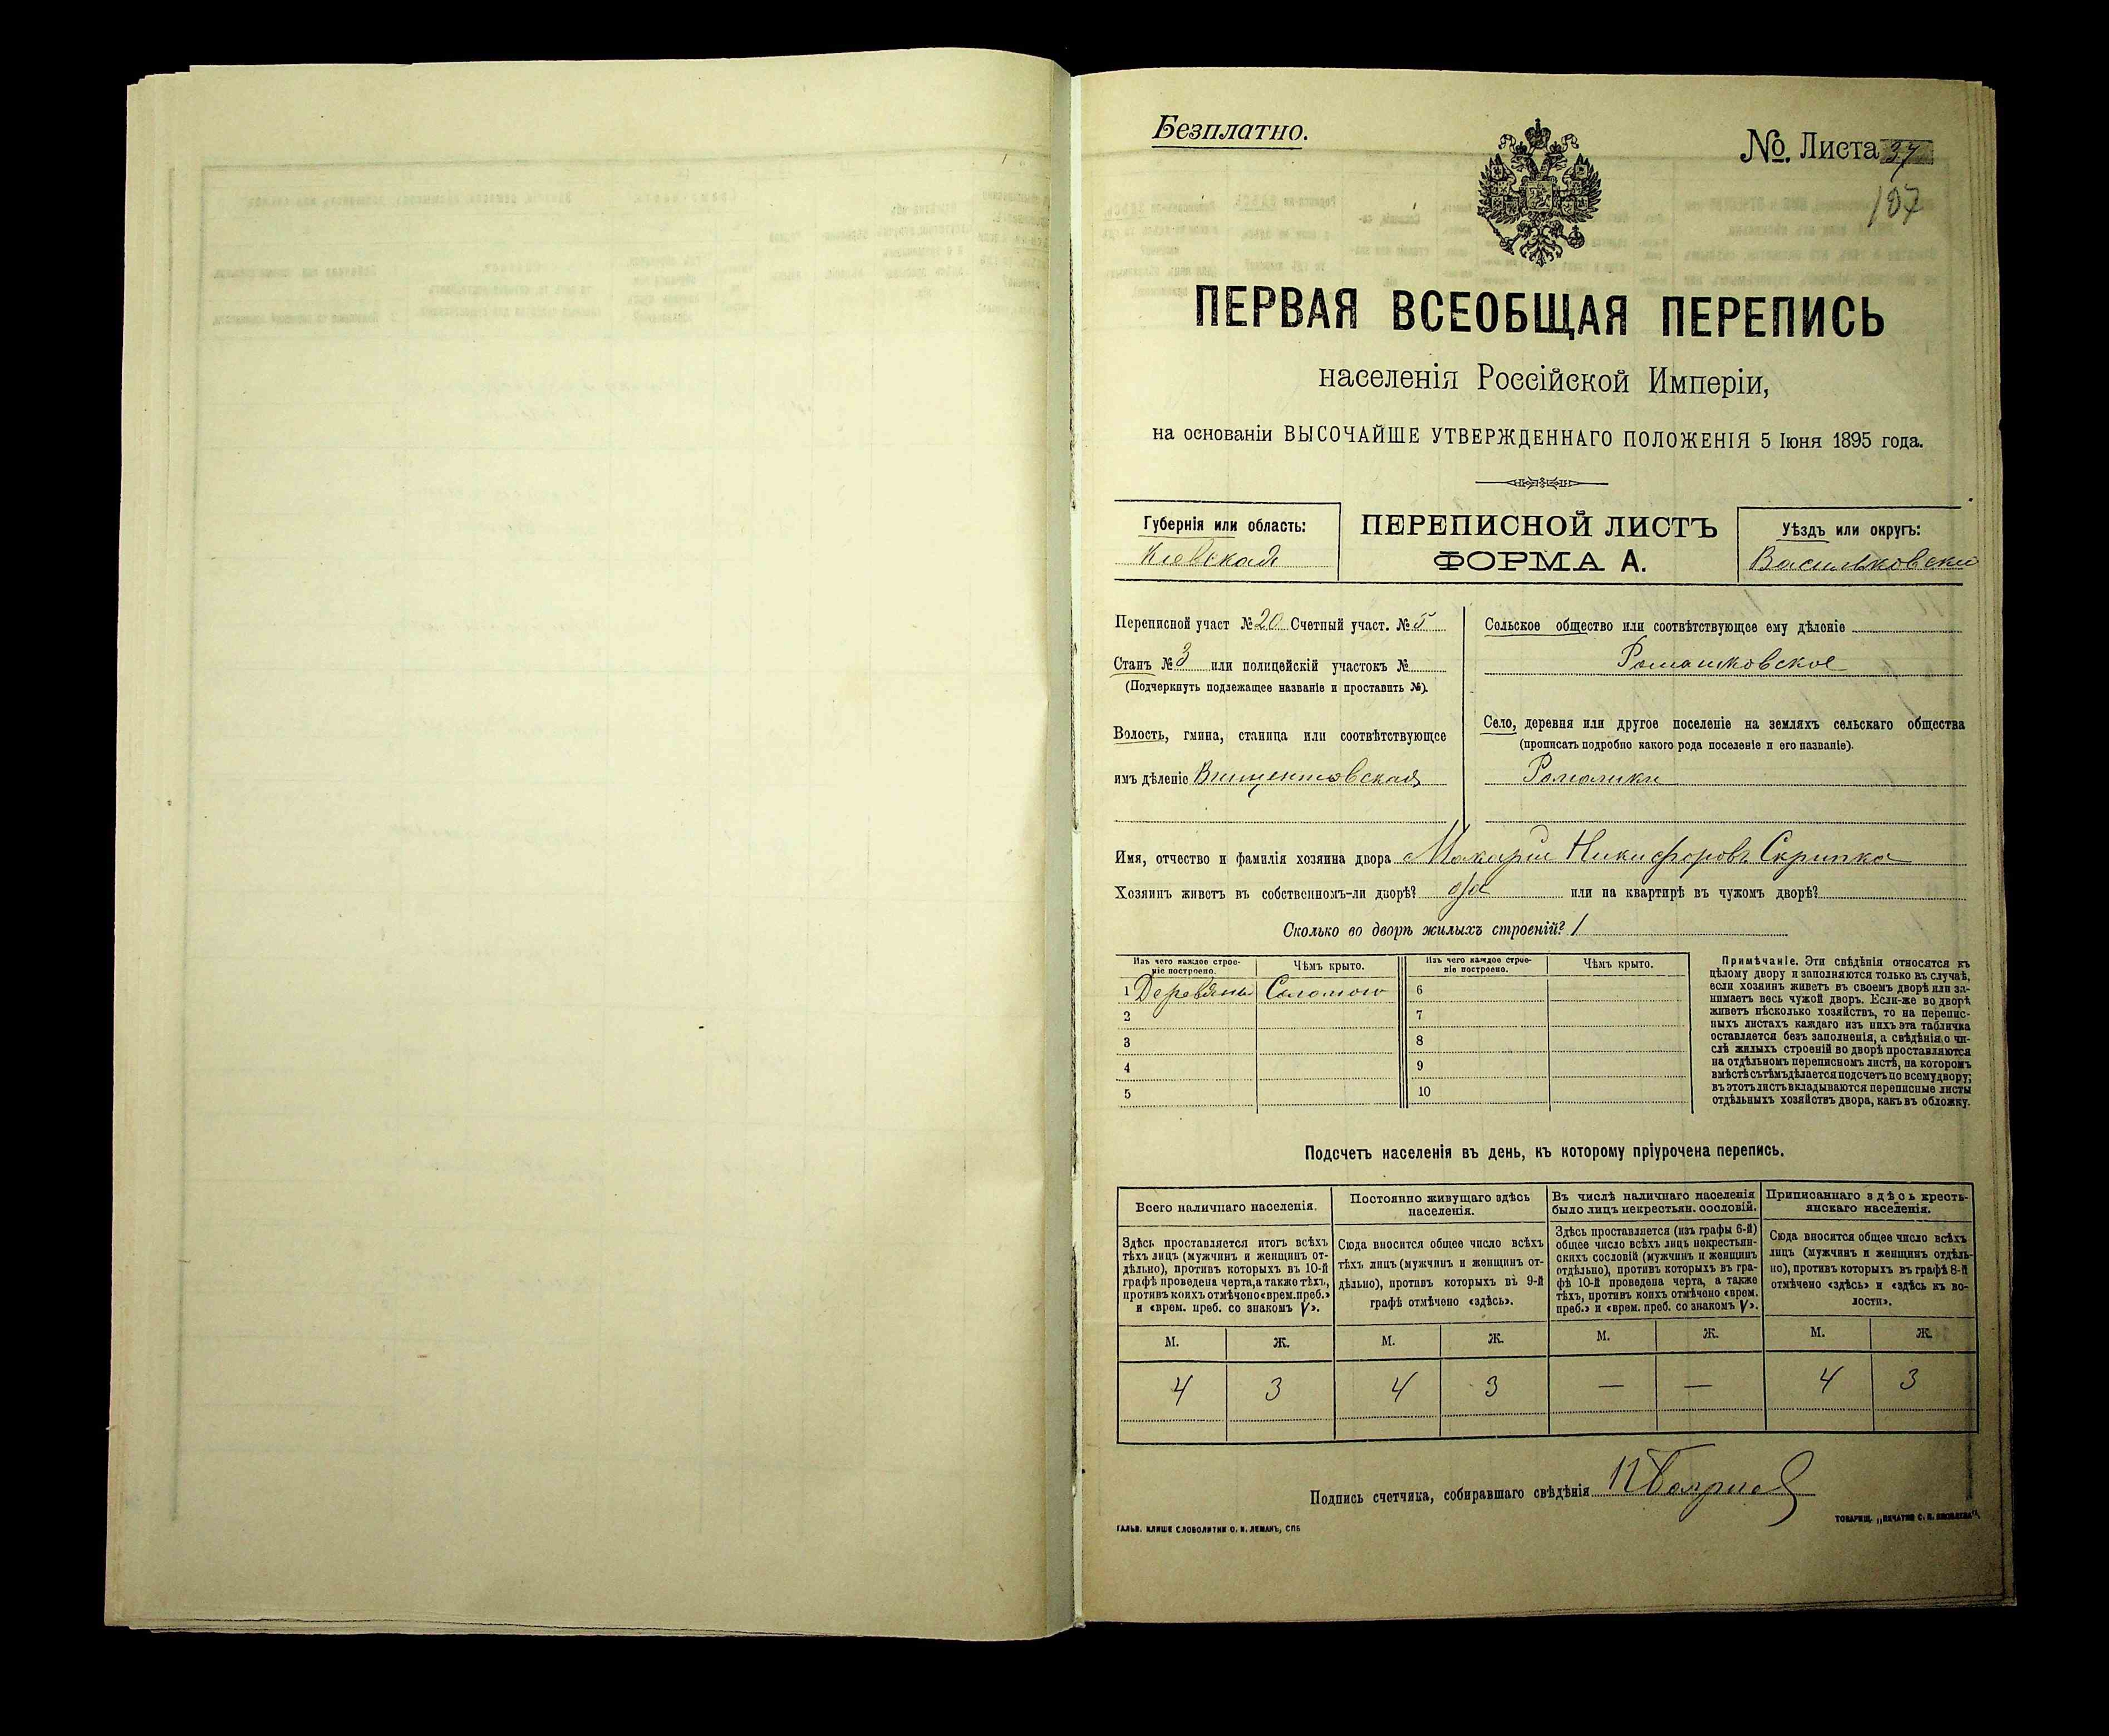 Безплатно.
№. Листа 37
187
ПЕРВАЯ ВСЕОБЩАЯ ПЕРЕПИСЬ
населенія Россійской Имперіи,
на основаніи ВЫСОЧАЙШЕ УТВЕРЖДЕННАГО ПОЛОЖЕНІЯ 5 Іюня 1895 года.
Губернія или область:
Кіевская
ПЕРЕПИСНОЙ ЛИСТЪ
ФОРМА А.
Уѣздъ или округъ:
Васильковскій
Переписной участ №20 Счетный участ. №5
Станъ №3 или полицейскій участокъ №
(Подчеркнуть подлежащее названіе и проставить №).
Волость, гмина, станица или соотвѣтствующее
имъ дѣленіе Винцентовская
Сельское общество или соотвѣтствующее ему дѣленіе
Ромашковское
Село, деревня или другое поселеніе на земляхъ сельскаго общества
(прописать подробно какого рода поселеніе и его названіе).
Ромашки
Имя, отчество и фамилія хозяина двора Макарій Никифоровъ Скрипка
Хозяинъ живетъ въ собственномъ-ли дворѣ? да или на квартирѣ въ чужомъ дворѣ?
Сколько во дворѣ жилыхъ строеній? 1
Изъ чего каждое строе-
ніе построено.
Чѣмъ крыто.
Изъ чего каждое строе-
ніе построено.
Чѣмъ крыто.
1 Деревяны Соломою 6
2 7
3 8
4 9
5 10
Примѣчаніе. Эти свѣдѣнія относятся къ
цѣлому двору и заполняются только въ случаѣ,
если хозяинъ живетъ въ своемъ дворѣ или за-
нимаетъ весь чужой дворъ. Если-же во дворѣ
живетъ нѣсколько хозяйствъ, то на перепис-
ныхъ листахъ каждаго изъ нихъ эта табличка
оставляется безъ заполненія, а свѣдѣнія о чи-
слѣ жилыхъ строеній во дворѣ проставляются
на отдѣльномъ переписномъ листѣ, на которомъ
вмѣстѣ съ тѣмъ дѣлается подсчетъ по всему двору;
въ этотъ листъ вкладываются переписные листы
отдѣльныхъ хозяйствъ двора, какъ въ обложку.
Подсчетъ населенія въ день, къ которому пріурочена перепись.
Всего наличнаго населенія.
Здѣсь проставляется итогъ всѣхъ
тѣхъ лицъ (мужчинъ и женщинъ от-
дѣльно), противъ которыхъ въ 10-й
графѣ проведена черта, а также тѣхъ,
противъ коихъ отмѣчено «врем. преб.»
и «врем. преб. со знакомъ V».
Постоянно живущаго здѣсь
населенія.
Сюда вносится общее число всѣхъ
тѣхъ лицъ (мужчинъ и женщинъ от-
дѣльно), противъ которыхъ въ 9-й
графѣ отмѣчено «здѣсь».
Въ числѣ наличнаго населенія
было лицъ некрестьян. сословій.
Здѣсь проставляется (изъ графы 6-й)
общее число всѣхъ лицъ некрестьян-
скихъ сословій (мужчинъ и женщинъ
отдѣльно), противъ которыхъ въ гра-
фѣ 10-й проведена черта, а также
тѣхъ, противъ коихъ отмѣчено «врем.
преб.» и «врем. преб. со знакомъ V».
Приписаннаго здѣсь кресть-
янскаго населенія.
Сюда вносится общее число всѣхъ
лицъ (мужчинъ и женщинъ отдѣль-
но), противъ которыхъ въ графѣ 8-й
отмѣчено «здѣсь» и «здѣсь къ во-
лости».
М. Ж. М. Ж. М. Ж. М. Ж.
4 3 4 3 — — 4 3
Подпись счетчика, собиравшаго свѣдѣнія
ГАЛЬВ. КЛИШЕ СЛОВОЛИТНИ О. И. ЛЕМАНЪ, СПБ
ТОВАРИЩ. „ПЕЧАТНЯ С. П. ЯКОВЛЕВА“.